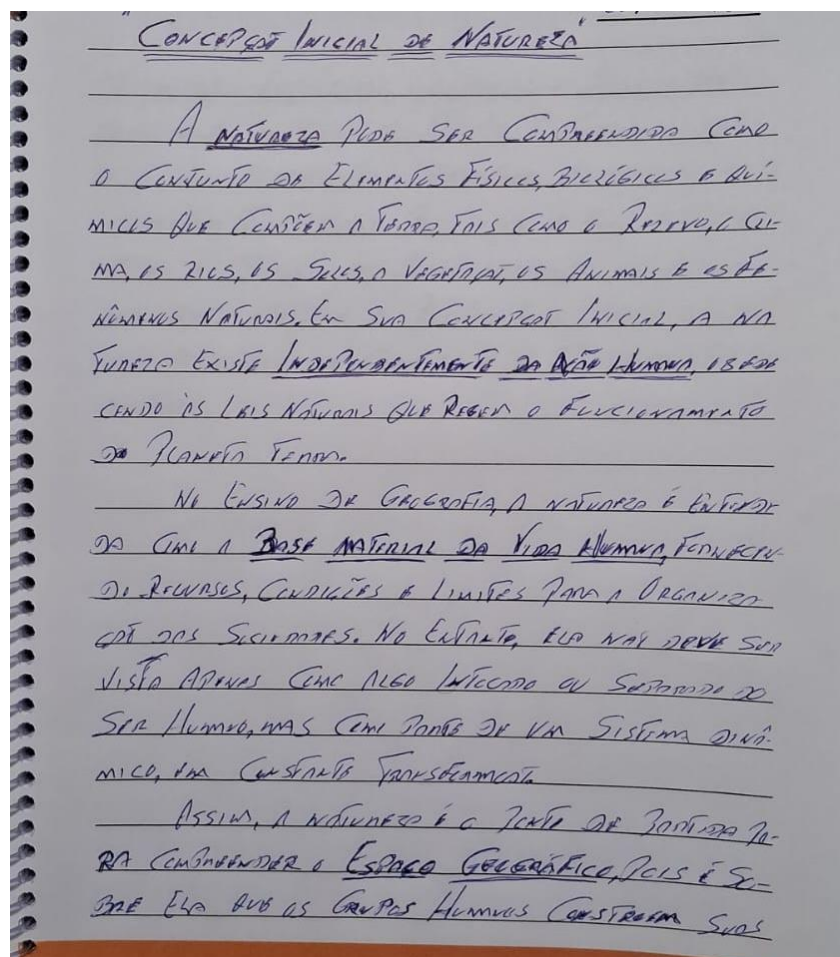 "CONCEPÇÃO INICIAL DE NATUREZA"
A NATUREZA PODE SER COMPREENDIDA COMO
O CONJUNTO DE ELEMENTOS FÍSICOS, BIOLÓGICOS E QUÍ-
MICOS QUE COMPÕEM A TERRA, TAIS COMO O RELEVO, O CLI-
MA, OS RIOS, OS SOLOS, A VEGETAÇÃO, OS ANIMAIS E OS FE-
NÔMENOS NATURAIS. EM SUA CONCEPÇÃO INICIAL, A NA
TUREZA EXISTE INDEPENDENTEMENTE DA AÇÃO HUMANA, OBEDE
CENDO ÀS LEIS NATURAIS QUE REGEM O FUNCIONAMENTO
DO PLANETA TERRA.
NO ENSINO DE GEOGRAFIA, A NATUREZA É ENTENDI
DA COMO A BASE MATERIAL DA VIDA HUMANA, FORNECEN-
DO RECURSOS, CONDIÇÕES E LIMITES PARA A ORGANIZA
ÇÃO DAS SOCIEDADES. NO ENTANTO, ELA NÃO DEVE SER
VISTA APENAS COMO ALGO INTOCADO OU SEPARADO DO
SER HUMANO, MAS COMO PARTE DE UM SISTEMA DINÂ-
MICO, EM CONSTANTE TRANSFORMAÇÃO.
ASSIM, A NATUREZA É O PONTO DE PARTIDA PA-
RA COMPREENDER O ESPAÇO GEOGRÁFICO, POIS É SO-
BRE ELA QUE OS GRUPOS HUMANOS CONSTROEM SUAS